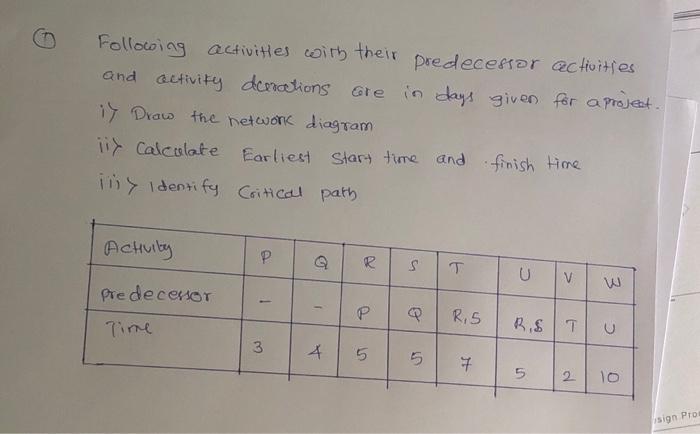 ① Following activities with their predecessor activities
and activity durations are in days given for a project.
i> Draw the network diagram
ii> Calculate Earliest Start time and finish time
iii> Identify Critical path
Activity P Q R S T U V W
predecessor - - P Q R,S R,S T U
Time 3 4 5 5 7 5 2 10
sign Pro